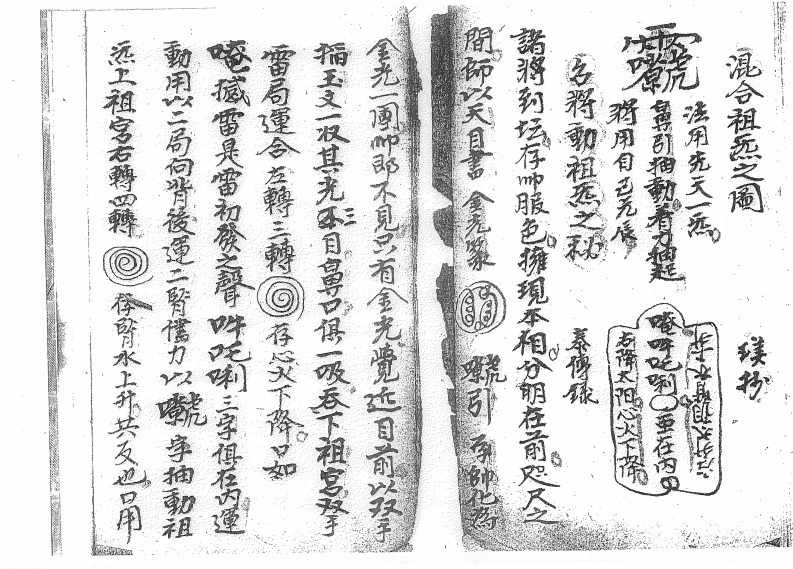 混合祖炁之圖
法用先天一炁
鼻引抽動着力抽起
將用自己元辰
召將動祖炁之秘
諸將到坛存帅服色擁現本相分明在前咫尺之
間師以天目書金光篆
號引存帥化為
唵吽吒唎
重在內
右降太阳心火下降
秦傳錄
金光一團帅即不見只有金光覺近目前以双手
掐玉文一收其光三目鼻口俱一吸吞下祖宮双手
雷局運合左轉三轉
存心火下降口如
唵撼雷是雷初發之聲吽吒唎三字俱在内運
動用以二局向背後運二腎儘力以
字抽動祖
炁上祖宮右轉四轉
存腎水上升共反也口用